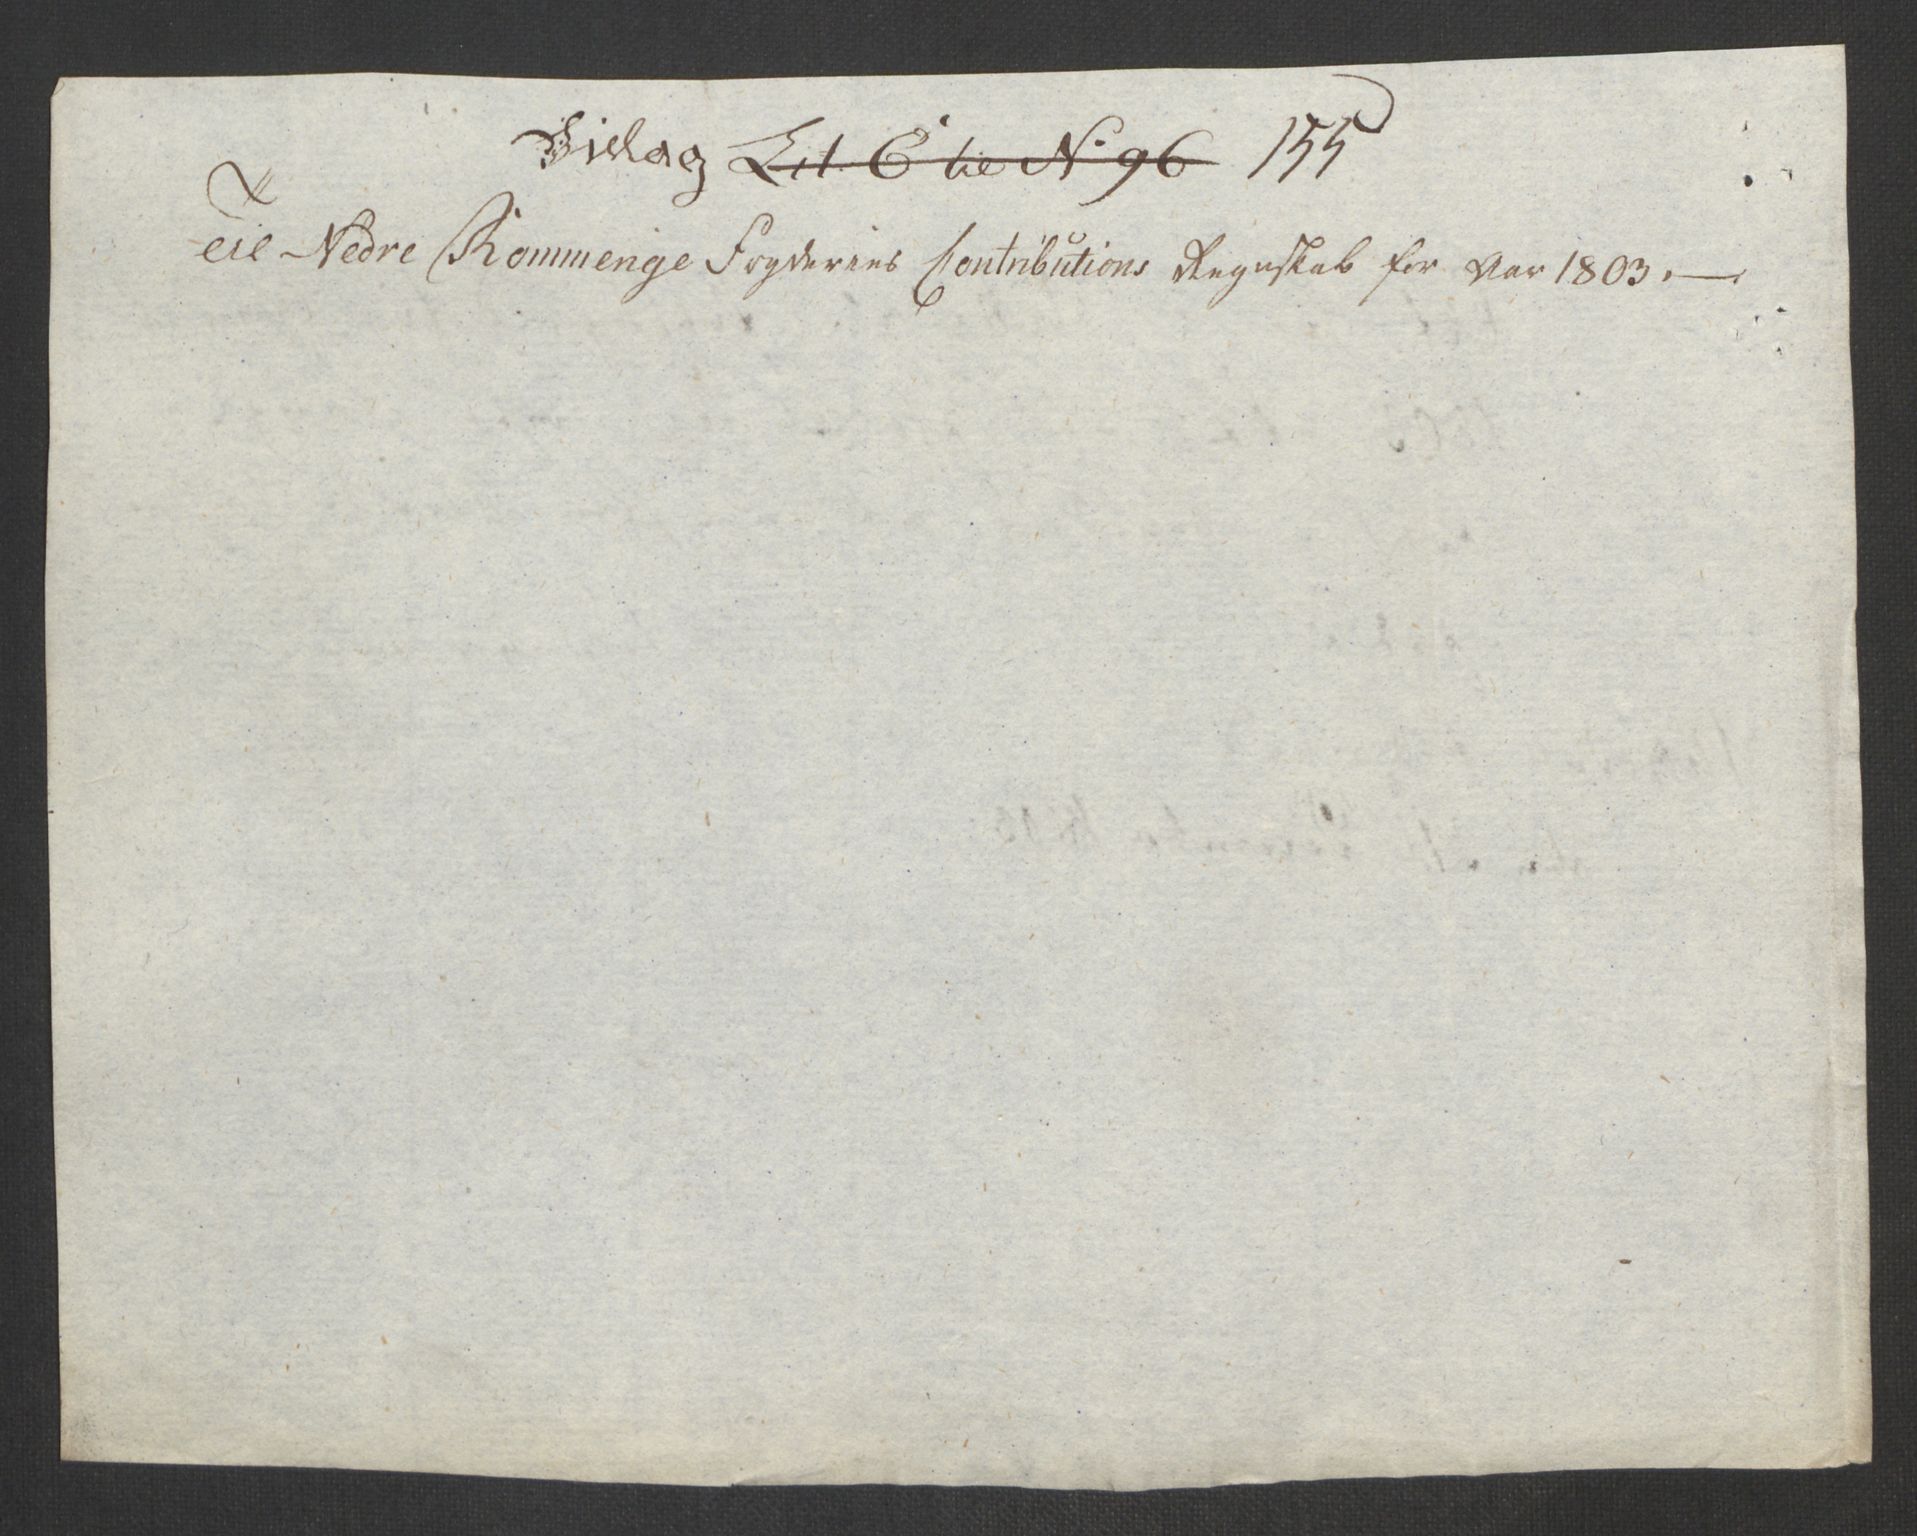 Bielag Lit. C til No 96 155
Til Nedre Rommerige Fogderies Contributions Regnskab for Aar 1803.